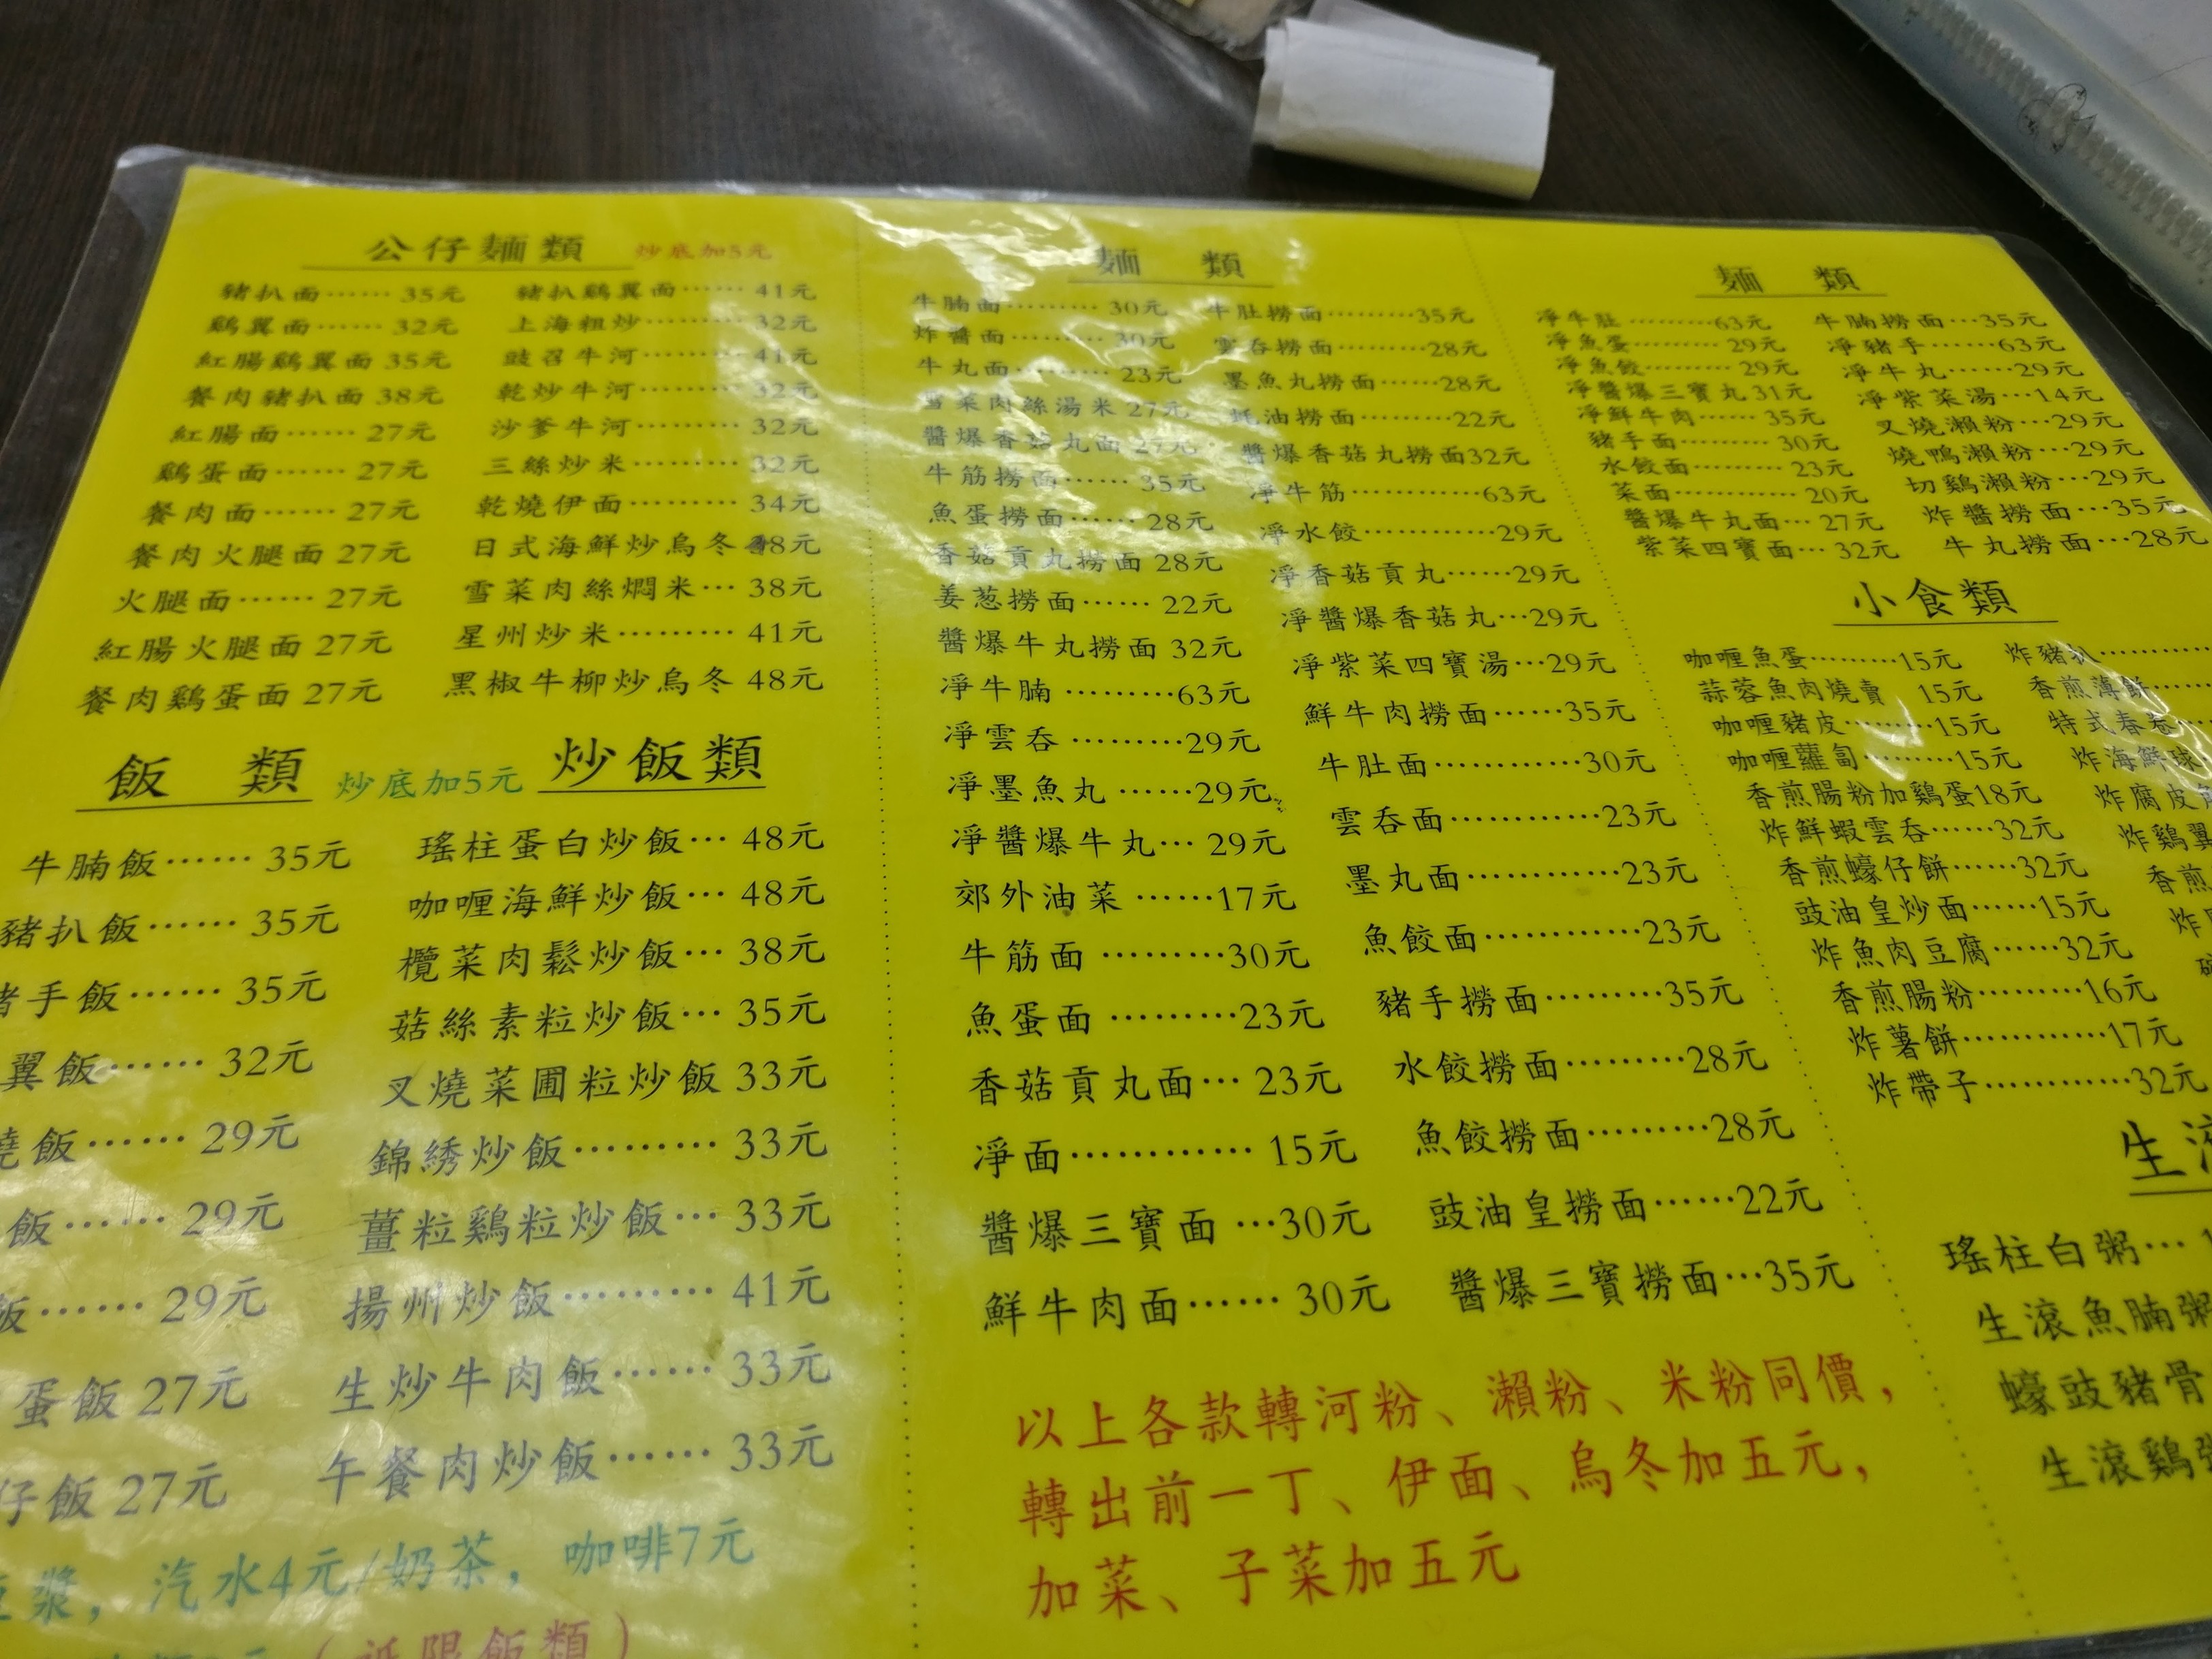 公仔麵類 炒底加5元
豬扒面…… 35元
鷄翼面…… 32元
紅腸鷄翼面 35元
餐肉豬扒面 38元
紅腸面…… 27元
鷄蛋面…… 27元
餐肉面…… 27元
餐肉火腿面 27元
火腿面…… 27元
紅腸火腿面 27元
餐肉鷄蛋面 27元
豬扒鷄翼面… 41元
上海粗炒……… 32元
豉召牛河……… 41元
乾炒牛河……… 32元
沙爹牛河……… 32元
三絲炒米……… 32元
乾燒伊面……… 34元
日式海鮮炒烏冬
雪菜肉絲燜米… 38元
星州炒米……… 41元
黑椒牛柳炒烏冬 48元
飯 類 炒底加5元
牛腩飯…… 35元
豬扒飯…… 35元
手飯…… 35元
翼飯…… 32元
飯…… 29元
飯…… 29元
…… 29元
蛋飯 27元
仔飯 27元
炒飯類
瑤柱蛋白炒飯… 48元
咖喱海鮮炒飯… 48元
欖菜肉鬆炒飯… 38元
菇絲素粒炒飯… 35元
叉燒菜圃粒炒飯 33元
錦綉炒飯……… 33元
薑粒鷄粒炒飯… 33元
揚州炒飯……… 41元
生炒牛肉飯…… 33元
午餐肉炒飯…… 33元
漿，汽水4元/奶茶，咖啡7元
（祗限飯類）
麵 類
牛腩面……… 30元
炸醬面……… 30元
牛丸面……… 23元
雪菜肉絲湯米 27元
醬爆香菇丸面 27元
牛筋撈面…… 35元
魚蛋撈面…… 28元
香菇貢丸撈面 28元
姜葱撈面…… 22元
醬爆牛丸撈面 32元
淨牛腩 ………63元
淨雲吞 ………29元
淨墨魚丸 ……29元
淨醬爆牛丸… 29元
郊外油菜 ……17元
牛筋面 ………30元
魚蛋面 ………23元
香菇貢丸面… 23元
淨面………… 15元
醬爆三寶面 …30元
鮮牛肉面…… 30元
牛肚撈面………35元
雲吞撈面………28元
墨魚丸撈面……28元
蚝油撈面………22元
醬爆香菇丸撈面32元
淨牛筋…………63元
淨水餃…………29元
淨香菇貢丸……29元
淨醬爆香菇丸…29元
淨紫菜四寶湯…29元
鮮牛肉撈面……35元
牛肚面…………30元
雲吞面…………23元
墨丸面…………23元
魚餃面…………23元
豬手撈面………35元
水餃撈面………28元
魚餃撈面………28元
豉油皇撈面……22元
醬爆三寶撈面…35元
以上各款轉河粉、瀨粉、米粉同價，
轉出前一丁、伊面、烏冬加五元，
加菜、子菜加五元
麵 類
淨牛肚 ………63元
淨魚蛋……… 29元
淨魚餃……… 29元
淨醬爆三寶丸 31元
淨鮮牛肉…… 35元
豬手面……… 30元
水餃面……… 23元
菜面………… 20元
醬爆牛丸面… 27元
紫菜四寶面… 32元
牛腩撈面…35元
淨豬手……63元
淨牛丸……29元
淨紫菜湯…14元
叉燒瀨粉…29元
燒鴨瀨粉…29元
切鷄瀨粉…29元
炸醬撈面…35元
牛丸撈面…28元
小食類
咖喱魚蛋………15元
蒜蓉魚肉燒賣 15元
咖喱豬皮………15元
咖喱蘿蔔………15元
香煎腸粉加鷄蛋18元
炸鮮蝦雲吞……32元
香煎蠔仔餅……32元
豉油皇炒面……15元
炸魚肉豆腐……32元
香煎腸粉………16元
炸薯餅…………17元
炸帶子…………32元
炸豬扒…………
香煎薄餅……
特式春卷
炸海鮮球
炸腐皮
炸鷄翼
香煎
炸
生
瑤柱白粥…
生滾魚腩粥
蠔豉豬骨
生滾鷄